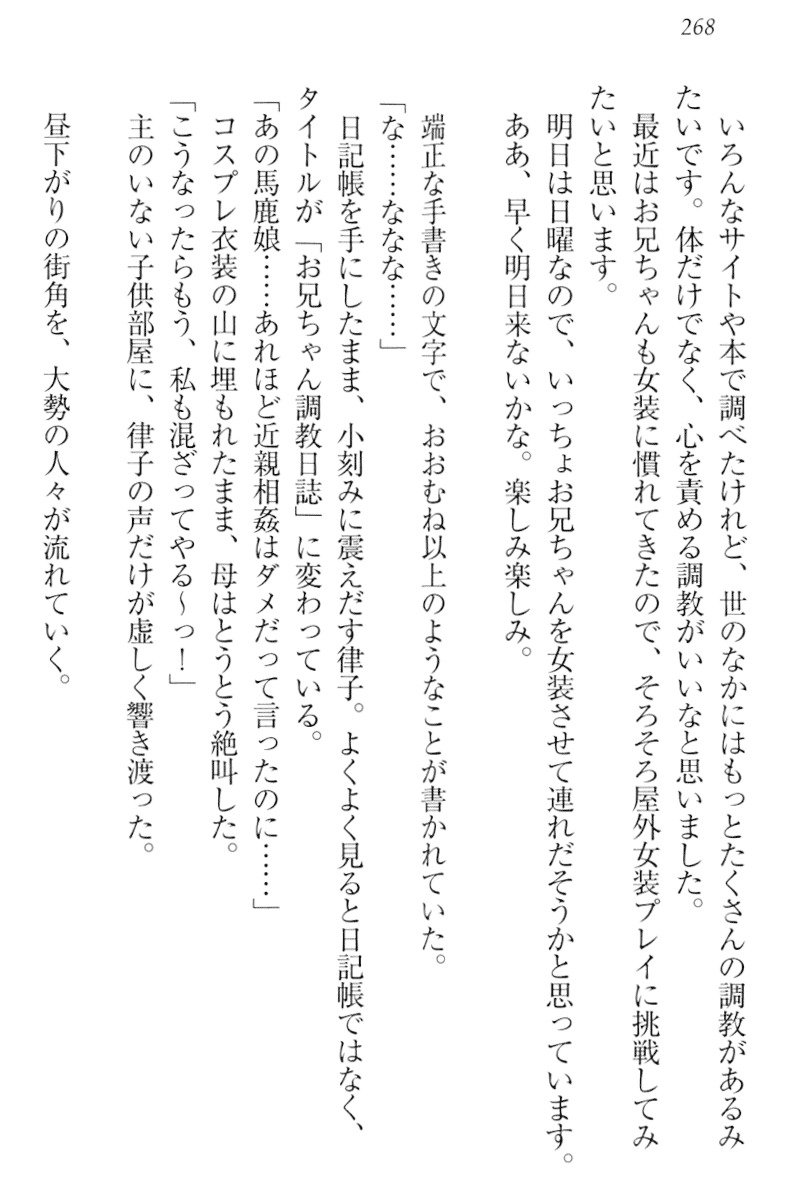 268
いろんなサイトや本で調べたけれど、世のなかにはもっとたくさんの調教があるみ
たいです。体だけでなく、心を責める調教がいいなと思いました。
最近はお兄ちゃんも女装に慣れてきたので、そろそろ屋外女装プレイに挑戦してみ
たいと思います。
明日は日曜なので、いっちょお兄ちゃんを女装させて連れだそうかと思っています。
ああ、早く明日来ないかな。楽しみ楽しみ。
端正な手書きの文字で、おおむね以上のようなことが書かれていた。
「な……ななな……」
日記帳を手にしたまま、小刻みに震えだす律子。よくよく見ると日記帳ではなく、
タイトルが「お兄ちゃん調教日誌」に変わっている。
「あの馬鹿娘……あれほど近親相姦はダメだって言ったのに……」
コスプレ衣装の山に埋もれたまま、母はとうとう絶叫した。
「こうなったらもう、私も混ざってやる～っ！」
主のいない子供部屋に、律子の声だけが虚しく響き渡った。
昼下がりの街角を、大勢の人々が流れていく。